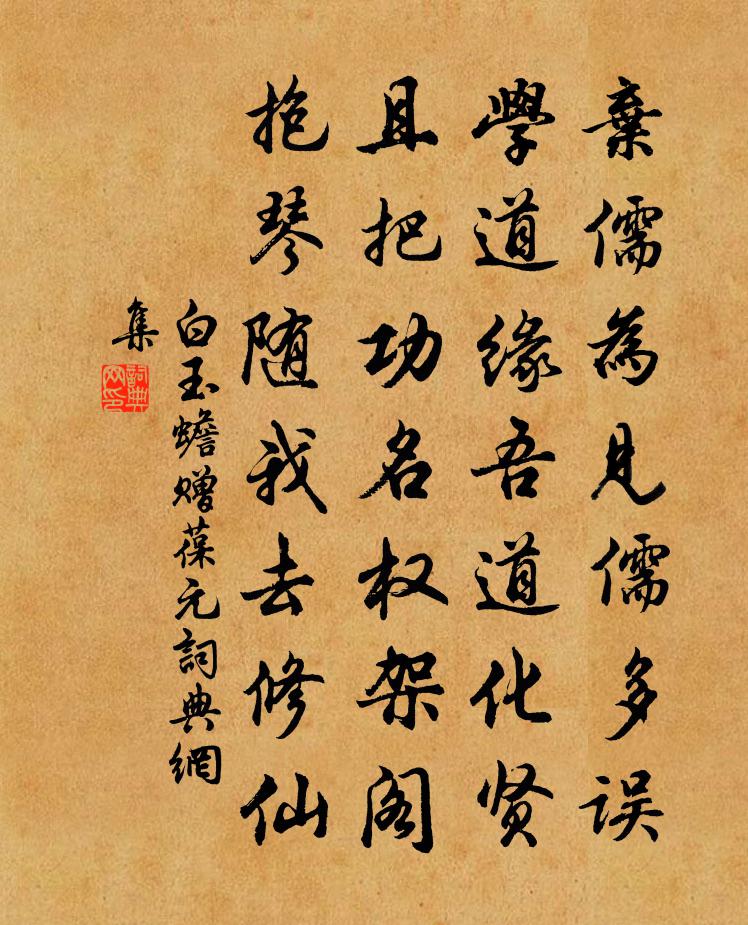 棄儒為見儒多误
學道缘吾道化贤
且把功名权架阁
抱琴随我去修仙
白玉蟾赠葆元詞典網
集
詞典網印